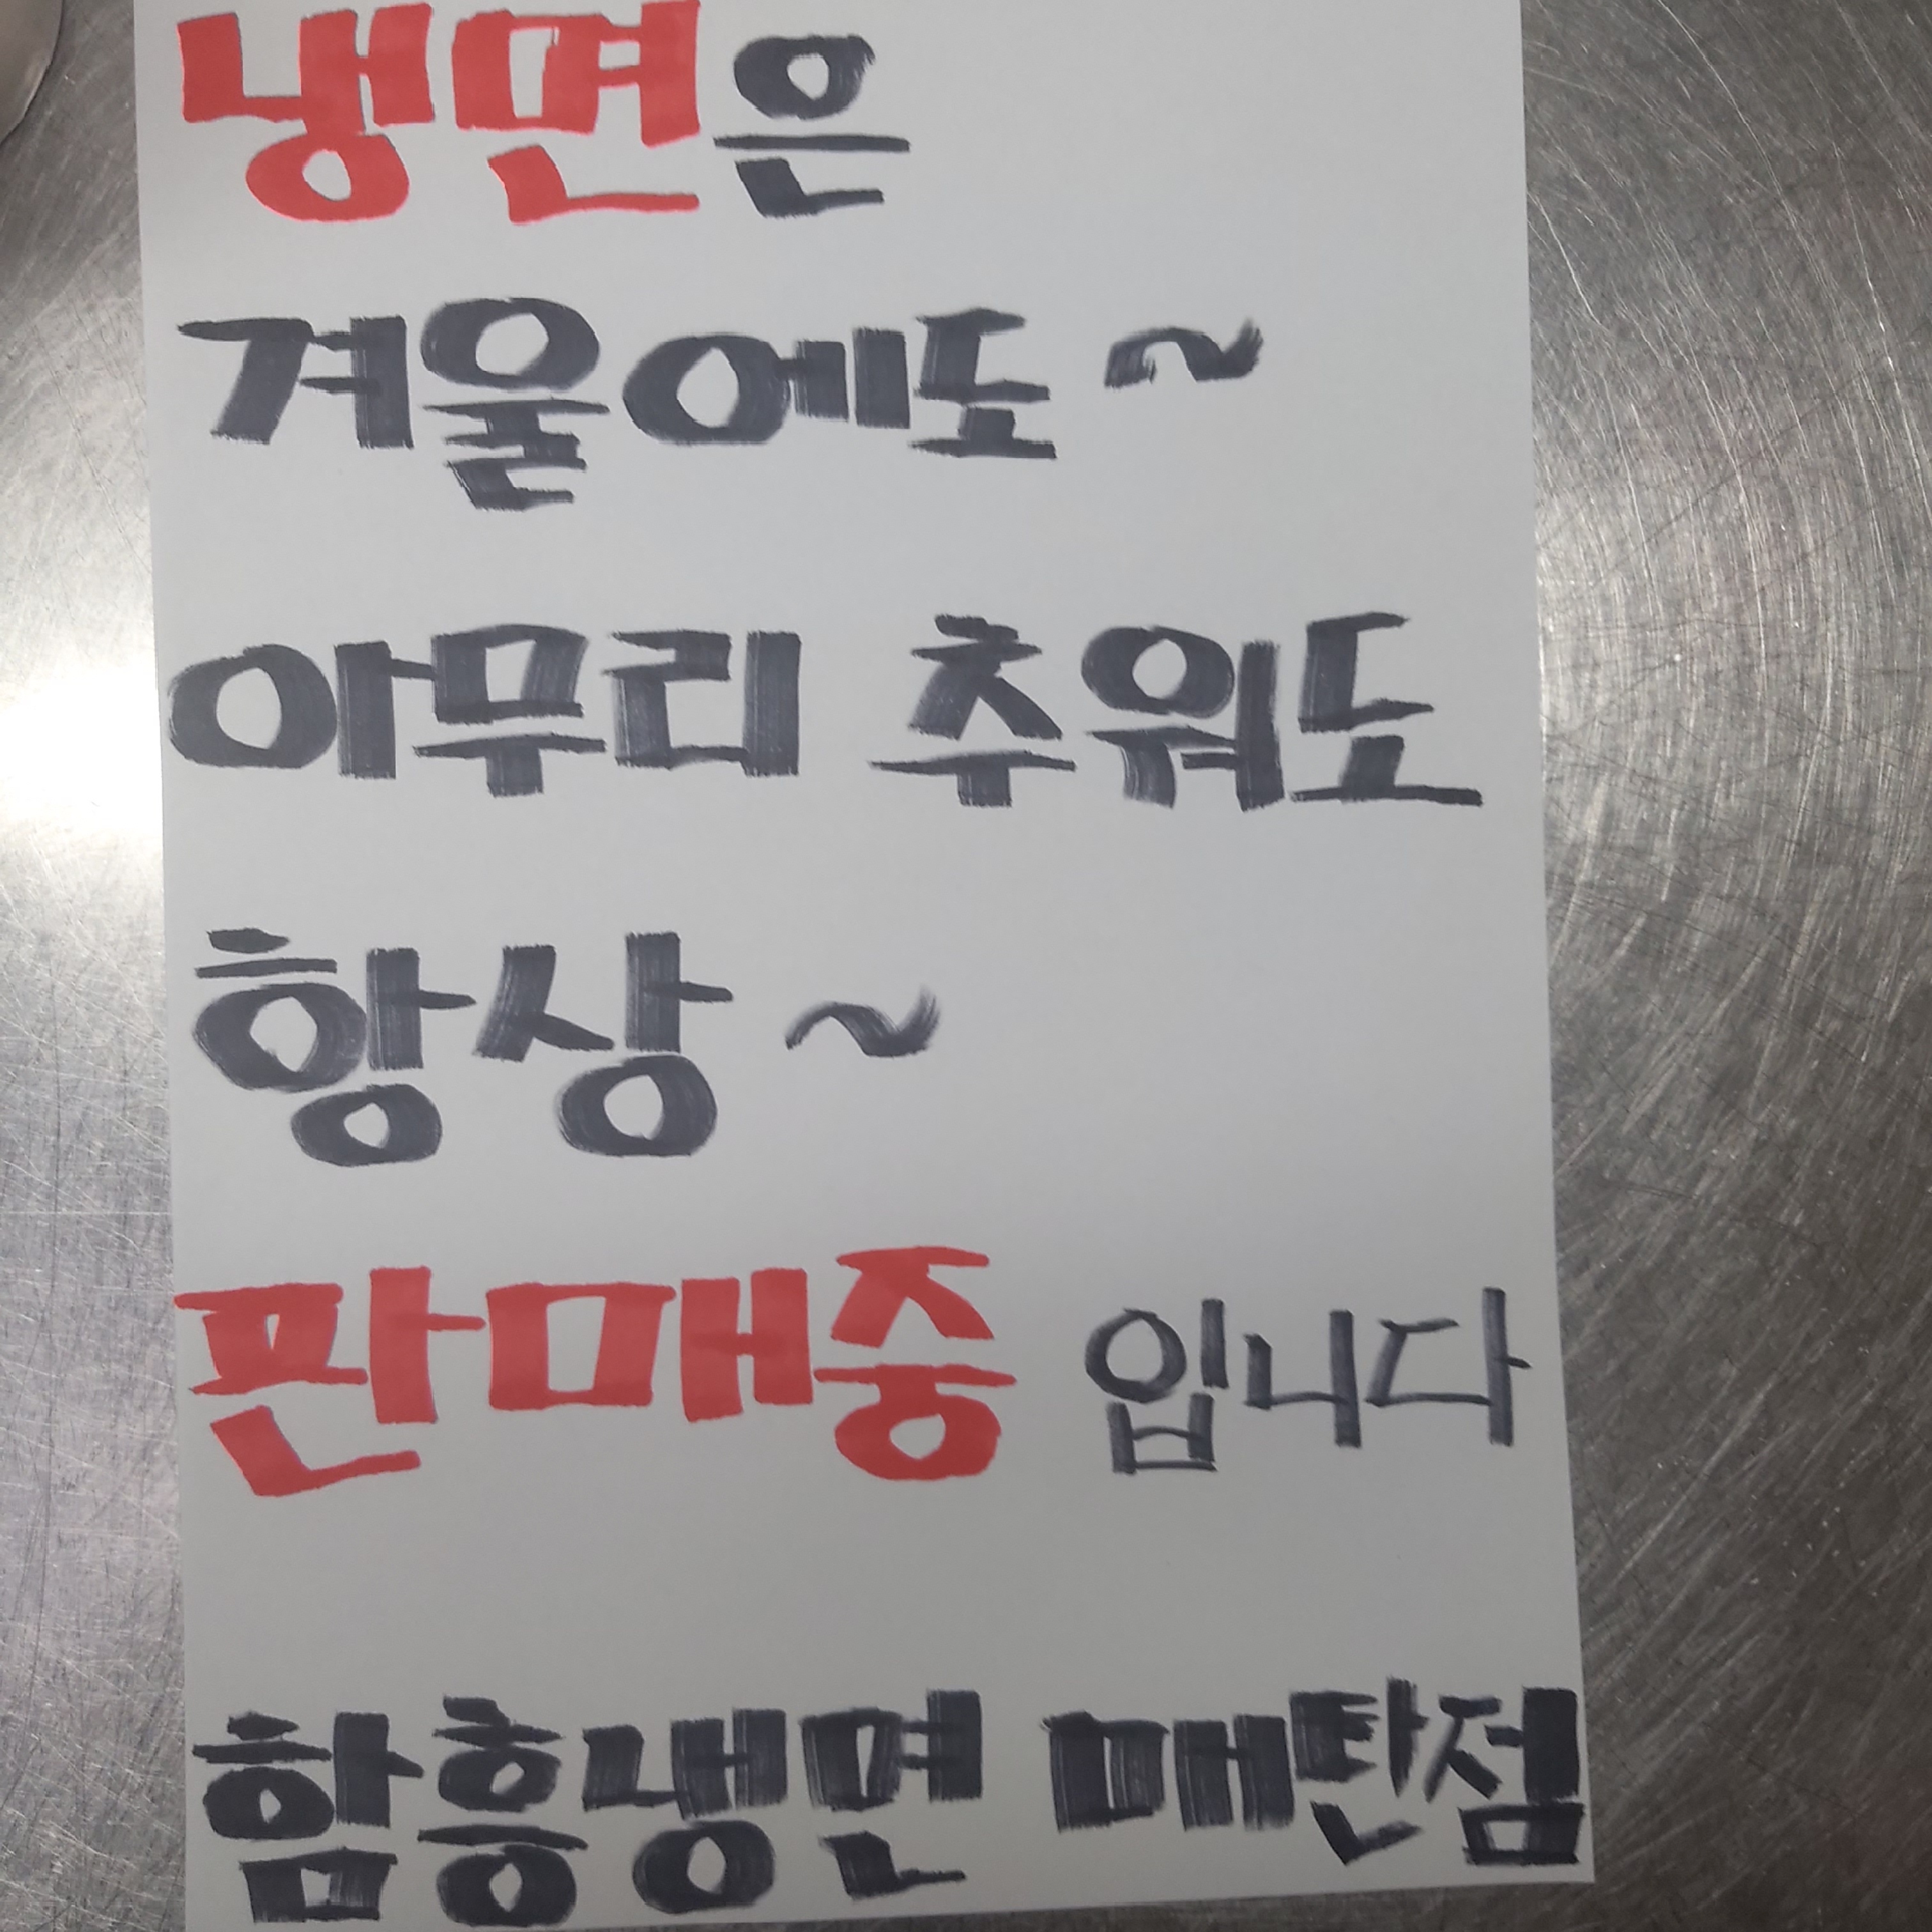 냉면은
겨울에도~
아무리 추워도
항상~
판매중 입니다
함흥냉면 매탄점